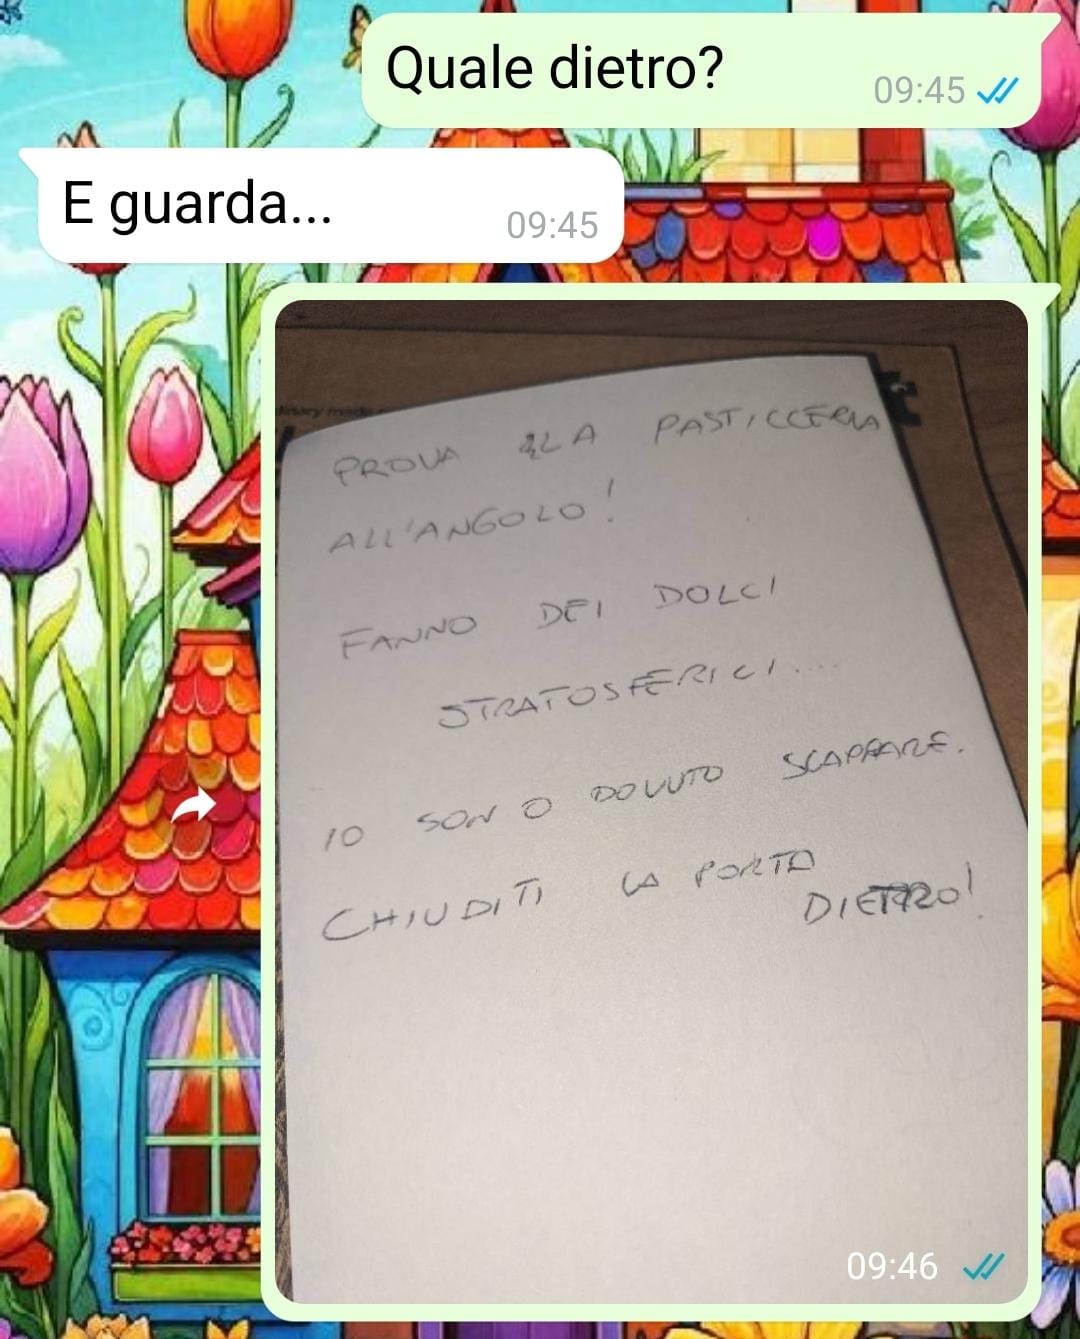 Quale dietro?
09:45
E guarda...
09:45
PROVA LA PASTICCERIA
ALL'ANGOLO!
FANNO DEI DOLCI
STRATOSFERICI....
IO SONO DOVUTO SCAPPARE.
CHIUDITI LA PORTA
DIETRO!
09:46